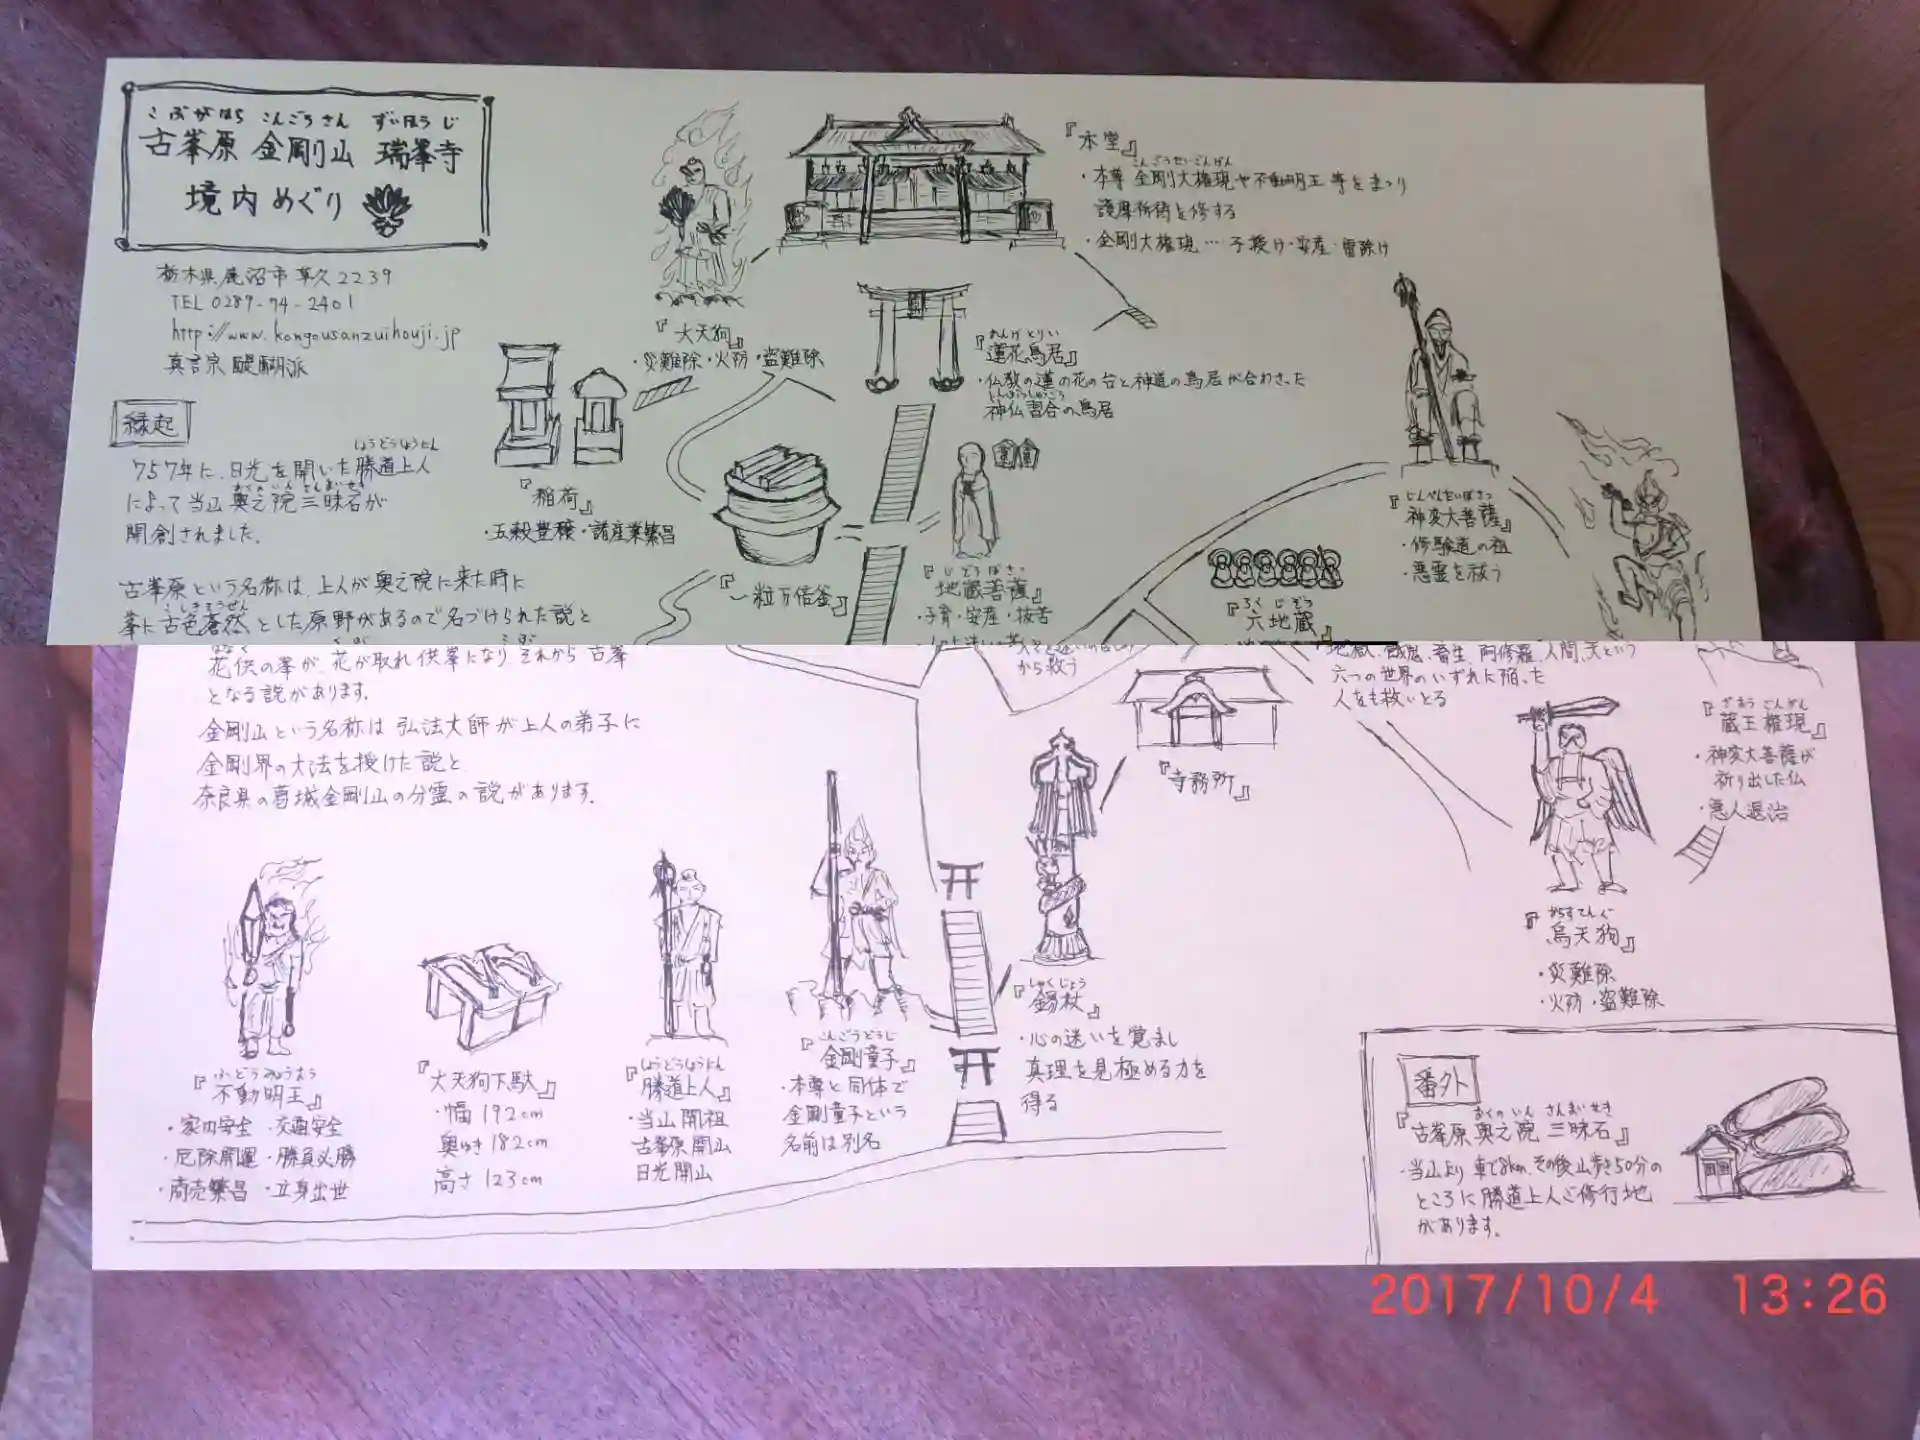 こぶがはら こんごうさん ずいほうじ
古峯原 金剛山 瑞峯寺
境内めぐり
栃木県鹿沼市草久2239
TEL 0289-74-2401
http://www.kongousanzuihouji.jp
真言宗醍醐派
縁起
しょうどうしょうにん
757年に、日光を開いた勝道上人
おくのいんさんまいせき
によって当山奥之院三昧石が
開創されました。
古峯原という名称は、上人が奥之院に来た時に
こしきそうぜん
峯に古色蒼然とした原野があるので名づけられた説と
花供の峯が、花が取れ供峯になり、それから古峯
となる説があります。
金剛山という名称は弘法大師が上人の弟子に
金剛界の大法を授けた説と
奈良県の葛城金剛山の分霊の説があります。
『大天狗』
・災難除・火防・盗難除
『本堂』
・本尊 金剛大権現や不動明王等をまつり
護摩祈祷を修する
・金剛大権現…子授け・安産・雷除け
れんげとりい
『蓮花鳥居』
・仏教の蓮の花の台と神道の鳥居が合わさった
しんぶつしゅうごう
神仏習合の鳥居
『稲荷』
・五穀豊穣・諸産業繁昌
『一粒万倍釜』
じぞうぼさつ
『地蔵菩薩』
・子育・安産・抜苦
から救う
じんぺんだいぼさつ
『神変大菩薩』
・修験道の祖
・悪霊を祓う
ろくじぞう
『六地蔵』
地獄、餓鬼、畜生、阿修羅、人間、天という
六つの世界のいずれに陥った
人をも救いとる
『寺務所』
ざおうごんげん
『蔵王権現』
・神変大菩薩が
祈り出した仏
・悪人退治
からすてんぐ
『烏天狗』
・災難除
・火防・盗難除
ふどうみょうおう
『不動明王』
・家内安全 ・交通安全
・厄除開運 ・勝負必勝
・商売繁昌 ・立身出世
『大天狗下駄』
・幅 192cm
奥ゆき 182cm
高さ 123cm
しょうどうしょうにん
『勝道上人』
・当山開祖
古峯原開山
日光開山
こんごうどうじ
『金剛童子』
・本尊と同体で
金剛童子という
名前は別名
しゃくじょう
『錫杖』
・心の迷いを覚まし
真理を見極める力を
得る
番外
おくのいん さんまいせき
『古峯原奥之院 三昧石』
・当山より車で8km、その後山歩き50分の
ところに勝道上人ご修行地
があります。
2017/10/4 13:26